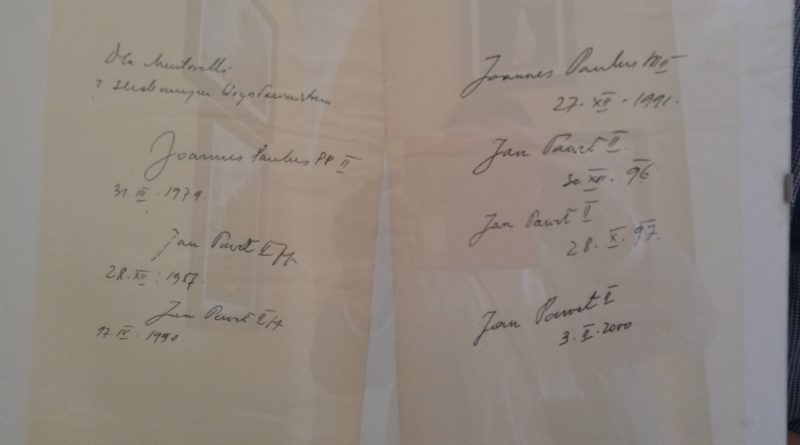 Dla Mentorelli
z serdecznym błogosławieństwem
Joannes Paulus PP II
31. III. 1979.
Jan Paweł II pp.
28. XII. 1987.
Jan Paweł II pp
17 IV. 1990.
Joannes Paulus PP II
27. XII. 1991.
Jan Paweł II.
30. XII. 96
Jan Paweł II
28. X. 97.
Jan Paweł II
3. II. 2000